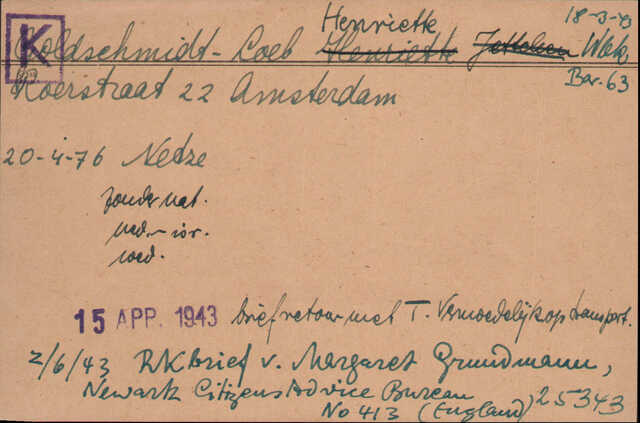 Henriette 18-3-43
K
Goldschmidt-Loeb Henriette Jettchen Wbk
Bar. 63
Roerstraat 22 Amsterdam
20-4-76 Netze
zonder nat.
ned.-isr.
wed.
15 APR. 1943 brief retour met T. Vermoedelijk op transport.
2/6/43 RK brief v. Margaret Grundmann,
Newark Citizens Advice Bureau
No 413 (England) 25343